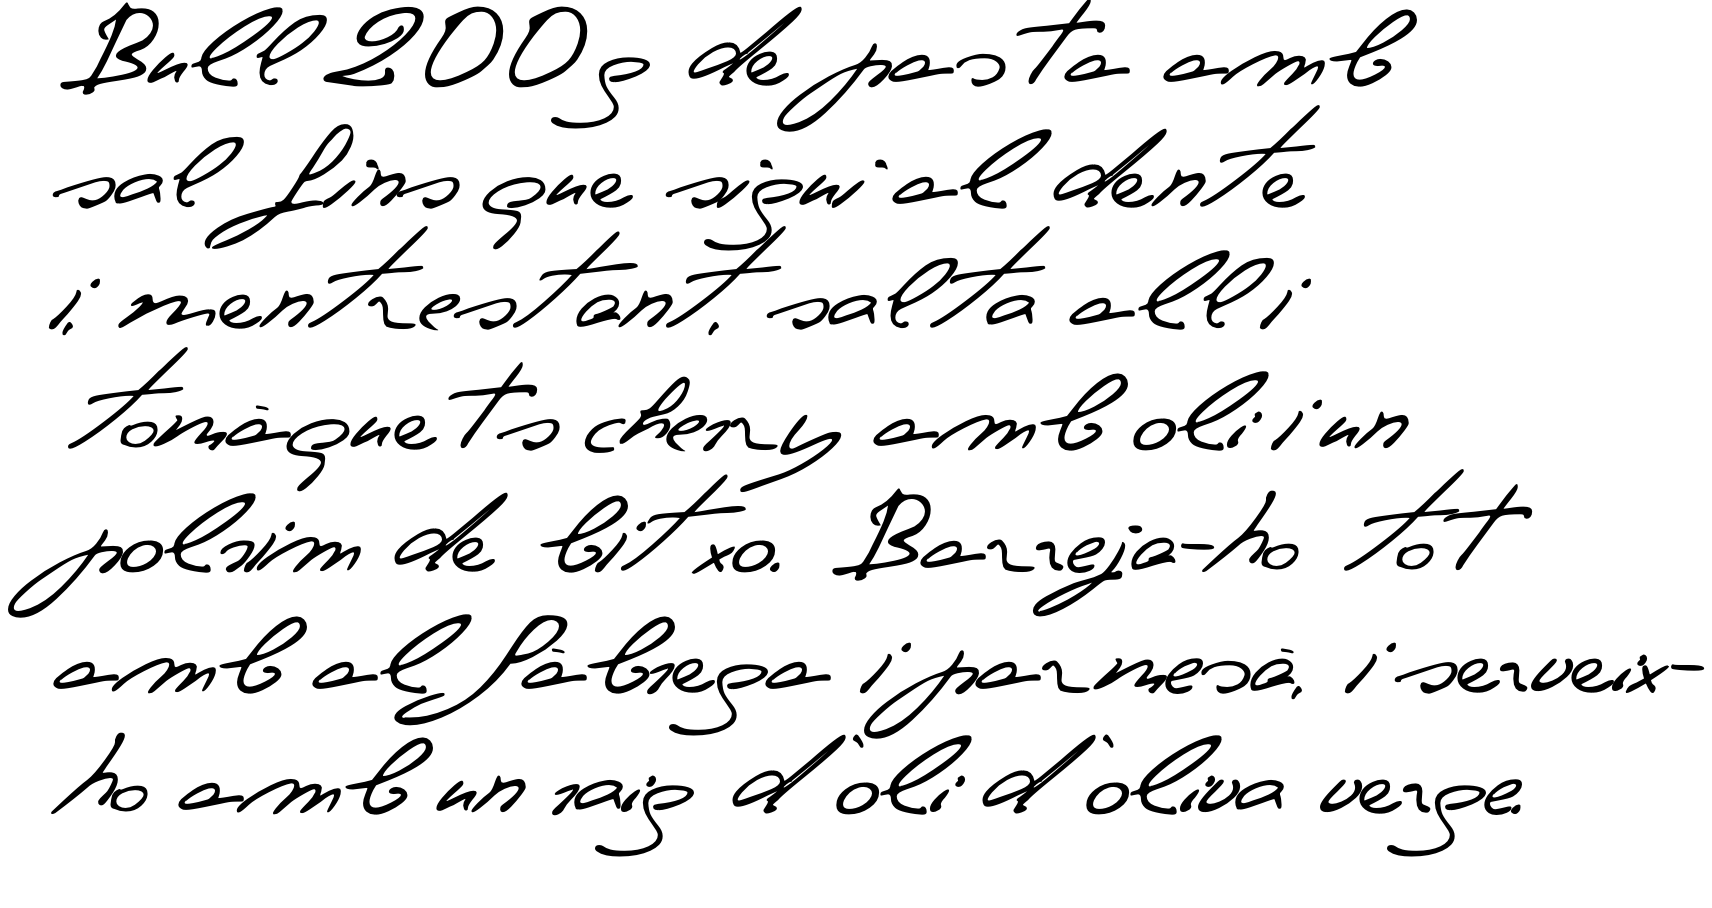 Bull 200g de pasta amb
sal fins que sigui al dente
i, mentrestant, salta all i
tomàquets cherry amb oli i un
polsim de bitxo. Barreja-ho tot
amb alfàbrega i parmesà, i serveix-
ho amb un raig d'oli d'oliva verge.